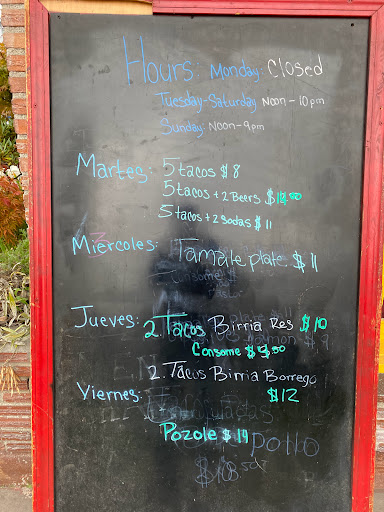 Hours: Monday: Closed
Tuesday-Saturday Noon-10pm
Sunday: Noon-9pm
Martes: 5 tacos $8
5 tacos + 2 Beers $
5 tacos + 2 Sodas $11
Miércoles: Tamale plate $11
Jueves: 2. Tacos Birria Res $10
Consome $
2. Tacos Birria Borrego
Viernes: $12
Pozole $19
pollo